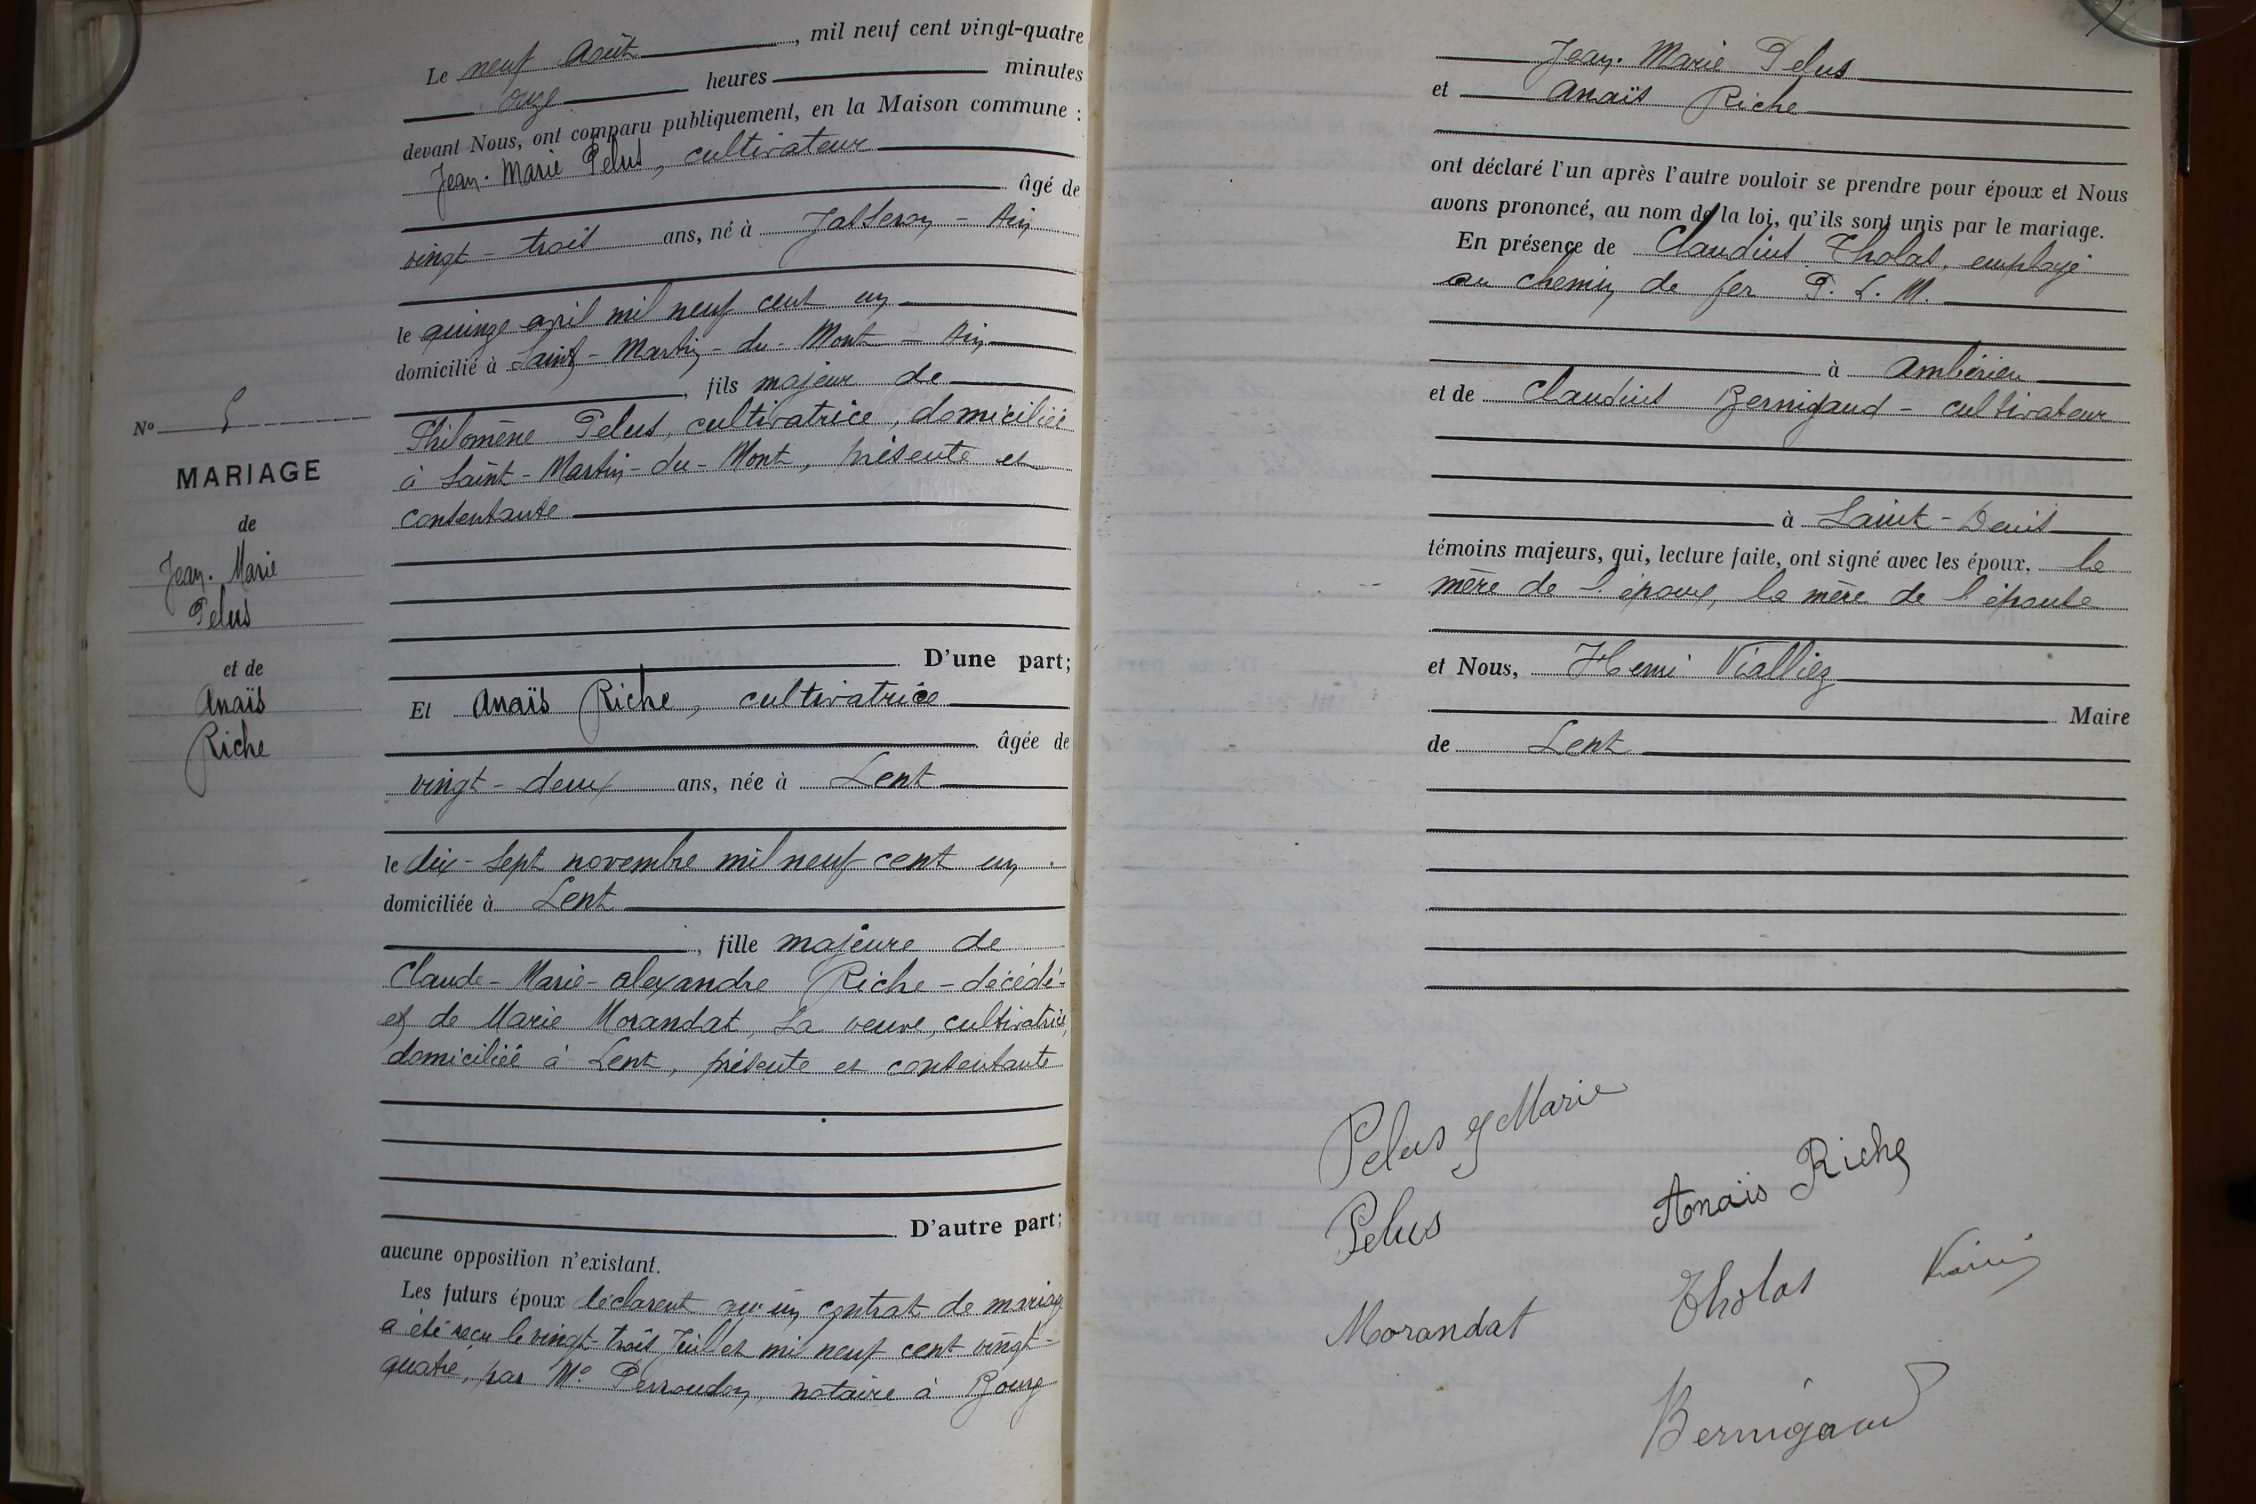 Nº 5
MARIAGE
de
Jean-Marie
Pelus
et de
Anaïs
Riche
Le neuf Août, mil neuf cent vingt-quatre
onze heures minutes
devant Nous, ont comparu publiquement, en la Maison commune :
Jean-Marie Pelus, cultivateur
âgé de
vingt-trois ans, né à Jasseron - Ain
le quinze avril mil neuf cent un
domicilié à Saint-Martin-du-Mont - Ain
, fils majeur de
Philomène Pelus, cultivatrice, domiciliée
à Saint-Martin-du-Mont, présente et
consentante
D'une part;
Et Anaïs Riche, cultivatrice
âgée de
vingt-deux ans, née à Lent
le dix-sept novembre mil neuf cent un
domiciliée à Lent
, fille majeure de
Claude-Marie-Alexandre Riche - décédé -
et de Marie Morandat, sa veuve, cultivatrice,
domiciliée à Lent, présente et consentante
D'autre part;
aucune opposition n'existant.
Les futurs époux déclarent qu'un contrat de mariage
a été reçu le vingt-trois Juillet mil neuf cent vingt-
quatre, par Me Perroudon, notaire à Bourg
Jean-Marie Pelus
et Anaïs Riche
ont déclaré l'un après l'autre vouloir se prendre pour époux et Nous
avons prononcé, au nom de la loi, qu'ils sont unis par le mariage.
En présence de Claudius Tholas, employé
au chemin de fer P. L. M.
à Ambérieu
et de Claudius Bernigaud - cultivateur
à Saint-Denis
témoins majeurs, qui, lecture faite, ont signé avec les époux, la
mère de l'époux, la mère de l'épouse
et Nous, Henri Vialliez
Maire
de Lent
Pelus J Marie
Anaïs Riche
Pelus
Tholas
Morandat
Bernigaud